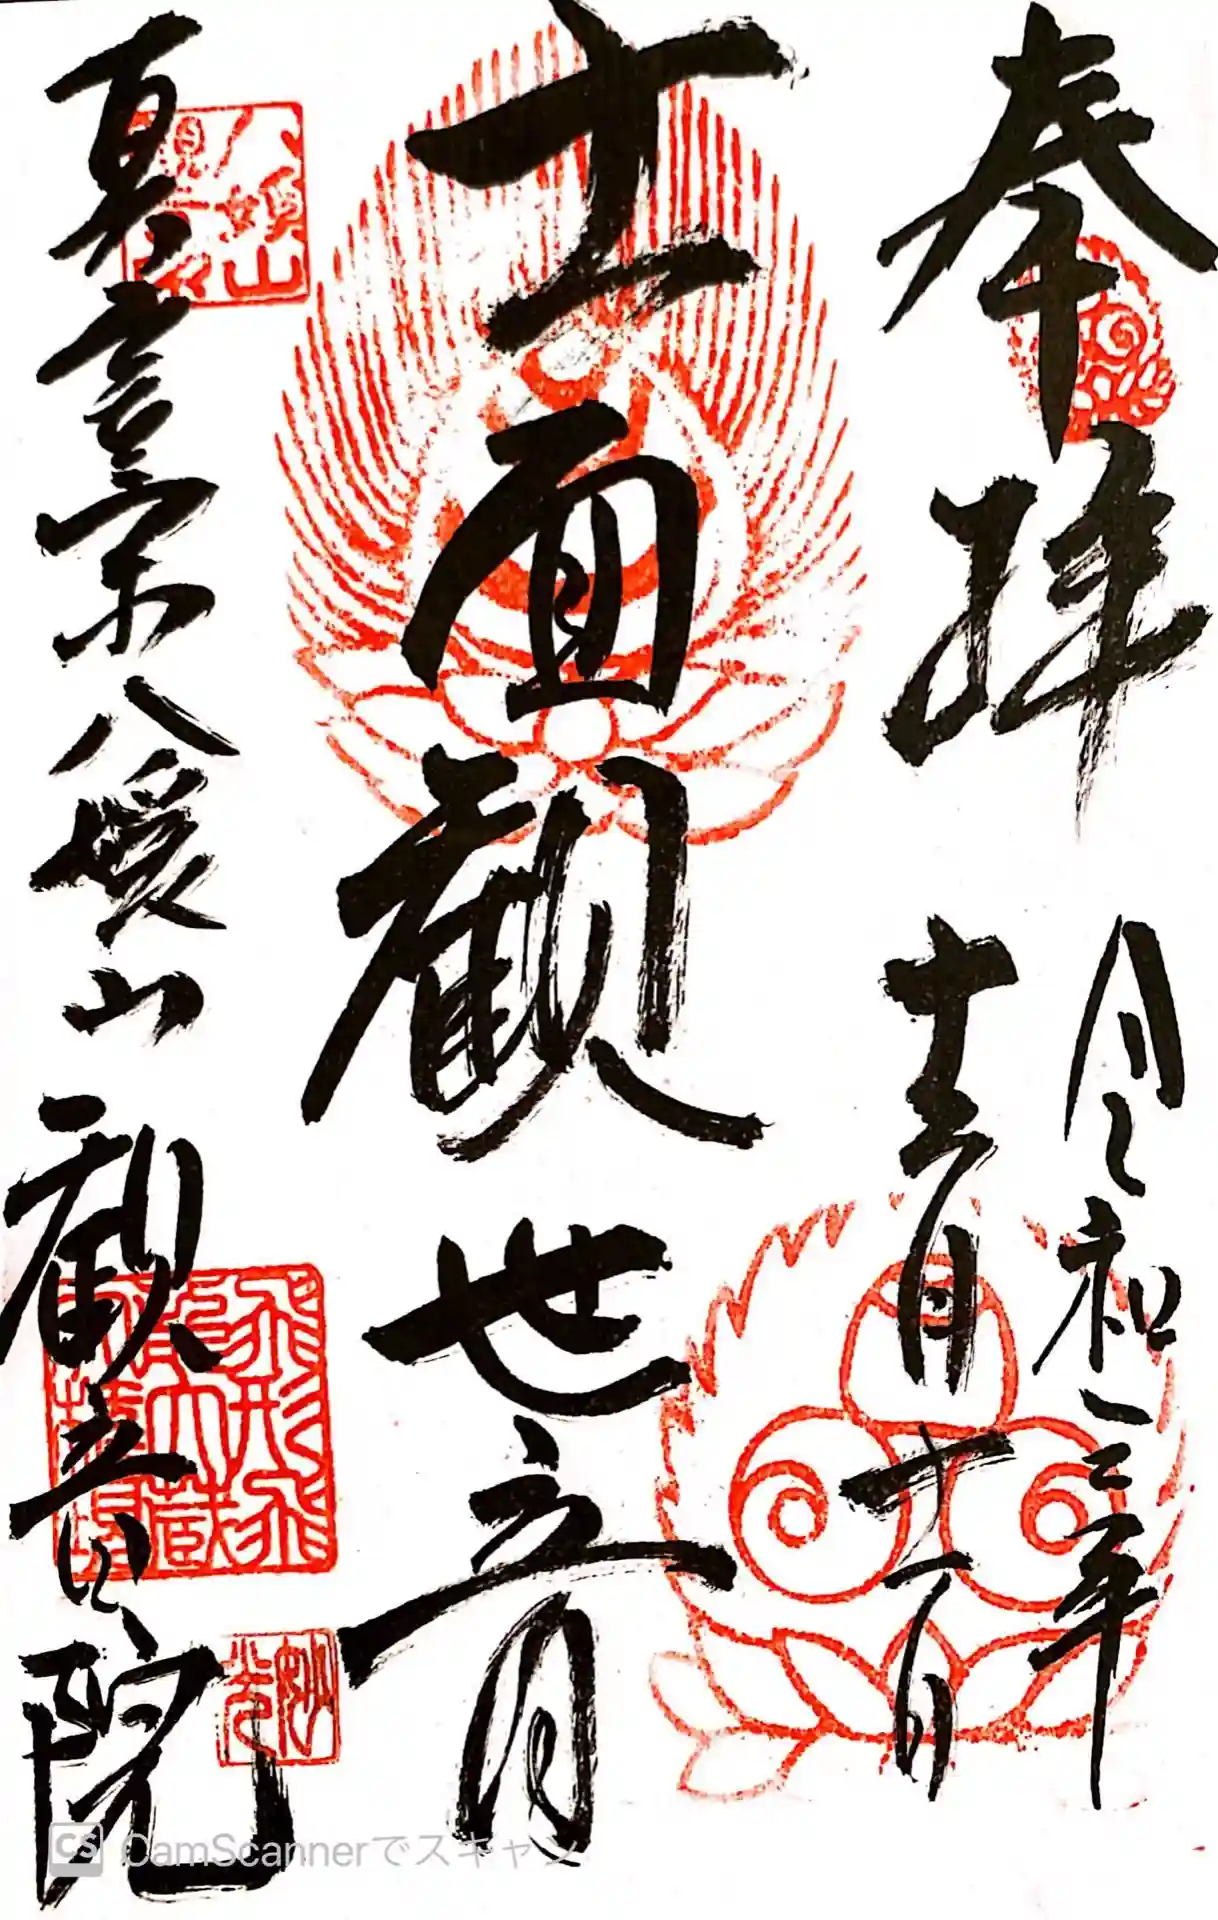 奉拝
令和三年
十二月十一日
十一面観世音
真言宗八媛山観音院
八媛山
妙光
CamScannerでスキャン